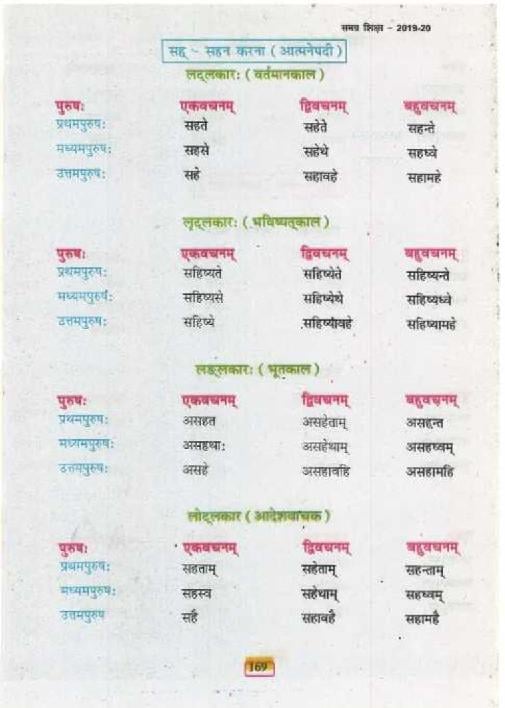 समग्र शिक्षा - 2019-20
सह् - सहन करना ( आत्मनेपदी )
लट्लकारः ( वर्तमानकाल )
पुरुषः एकवचनम् द्विवचनम् बहुवचनम्
प्रथमपुरुषः सहते सहेते सहन्ते
मध्यमपुरुषः सहसे सहेथे सहध्वे
उत्तमपुरुषः सहे सहावहे सहामहे
लृट्लकारः ( भविष्यत्काल )
पुरुषः एकवचनम् द्विवचनम् बहुवचनम्
प्रथमपुरुषः सहिष्यते सहिष्येते सहिष्यन्ते
मध्यमपुरुषः सहिष्यसे सहिष्येथे सहिष्यध्वे
उत्तमपुरुषः सहिष्ये सहिष्यावहे सहिष्यामहे
लङ्लकारः ( भूतकाल )
पुरुषः एकवचनम् द्विवचनम् बहुवचनम्
प्रथमपुरुषः असहत असहेताम् असहन्त
मध्यमपुरुषः असहथाः असहेथाम् असहध्वम्
उत्तमपुरुषः असहे असहावहि असहामहि
लोट्लकार ( आदेशवाचक )
पुरुषः एकवचनम् द्विवचनम् बहुवचनम्
प्रथमपुरुषः सहताम् सहेताम् सहन्ताम्
मध्यमपुरुषः सहस्व सहेथाम् सहध्वम्
उत्तमपुरुष सहै सहावहै सहामहै
169